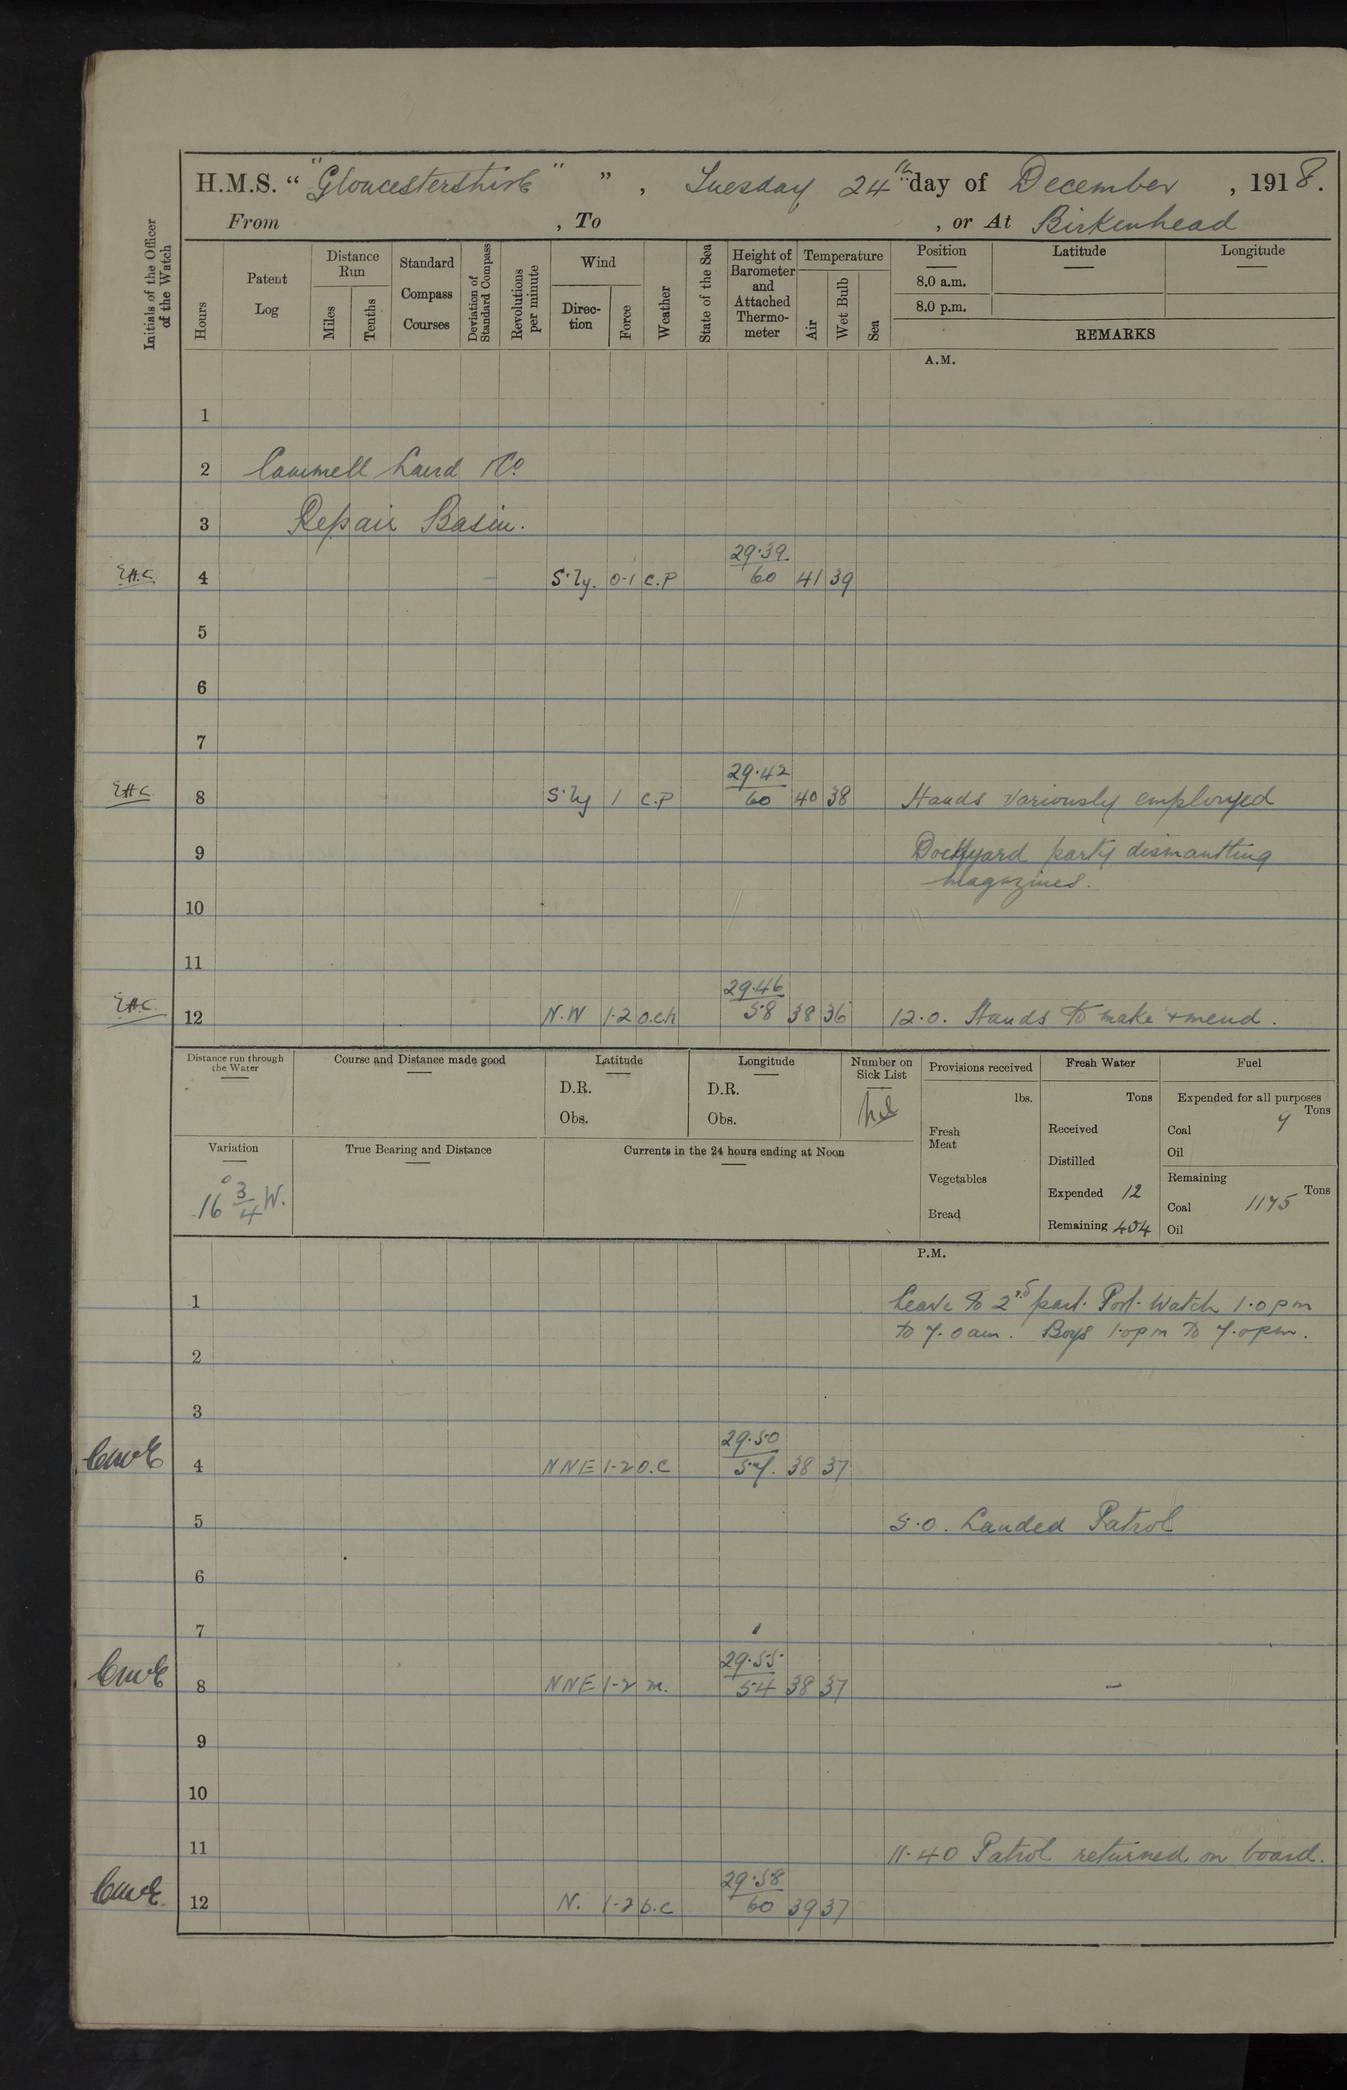 H.M.S. " "Gloucestershire" " , Tuesday 24th day of December , 1918.
From , To , or At Birkenhead
Initials of the Officer of the Watch
Hours
Patent Log
Distance Run
Miles
Tenths
Standard Compass Courses
Deviation of Standard Compass
Revolutions per minute
Wind
Direc-tion
Force
Weather
State of the Sea
Height of Barometer and Attached Thermo-meter
Temperature
Air
Wet Bulb
Sea
Position Latitude Longitude
8.0 a.m.
8.0 p.m.
REMARKS
A.M.
1
2 Cammell Laird & Co
3 Repair Basin.
E.H.C. 4 S'ly. 0-1 c.p 29.39 / 60 41 39
5
6
7
E.H.C. 8 S'ly 1 c.p 29.42 / 60 40 38 Hands variously employed
9 Dockyard party dismantling
magazines.
10
11
E.H.C. 12 N.W 1-2 o.c.h 29.46 / 58 38 36 12.0. Hands to make & mend.
Distance run through the Water
Course and Distance made good
Latitude
D.R.
Obs.
Longitude
D.R.
Obs.
Number on Sick List
Nil
Provisions received
lbs.
Fresh Meat
Vegetables
Bread
Fresh Water
Tons
Received
Distilled
Expended 12
Remaining 404
Fuel
Expended for all purposes
Tons
Coal 7
Oil
Remaining
Tons
Coal 1175
Oil
Variation
16° 3/4 W.
True Bearing and Distance
Currents in the 24 hours ending at Noon
P.M.
1 Leave to 2nd part. Port. Watch 1.0pm
to 7.0am. Boys 1.0pm to 7.0pm.
2
3
4 NNE 1-2 o.c 29.50 / 57. 38 37
5 5.0. Landed Patrol
6
7
8 NNE 1-2 m. 29.55 / 54 38 37
9
10
11 11.40 Patrol returned on board.
12 N. 1-2 b.c 29.58 / 60 39 37